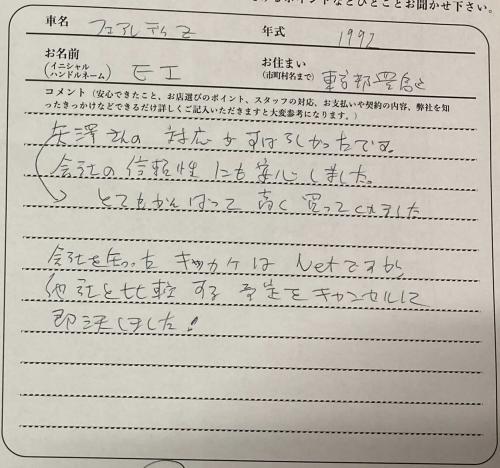 るポイントなどひとことお聞かせ下さい。
車名 フェアレディZ 年式 1992
お名前(イニシャル ハンドルネーム) E I お住まい(市町村名まで) 東京都豊島区
コメント（安心できたこと、お店選びのポイント、スタッフの対応、お支払いや契約の内容、弊社を知
ったきっかけなどできるだけ詳しくご記入いただきますと大変参考になります。）
矢澤さんの 対応がすばらしかったです。
会社の信頼性にも安心しました。
とてもがんばって 高く 買ってくれました
会社を知った キッカケは Netですが
他社と比較する 予定をキャンセルして
即決しました！